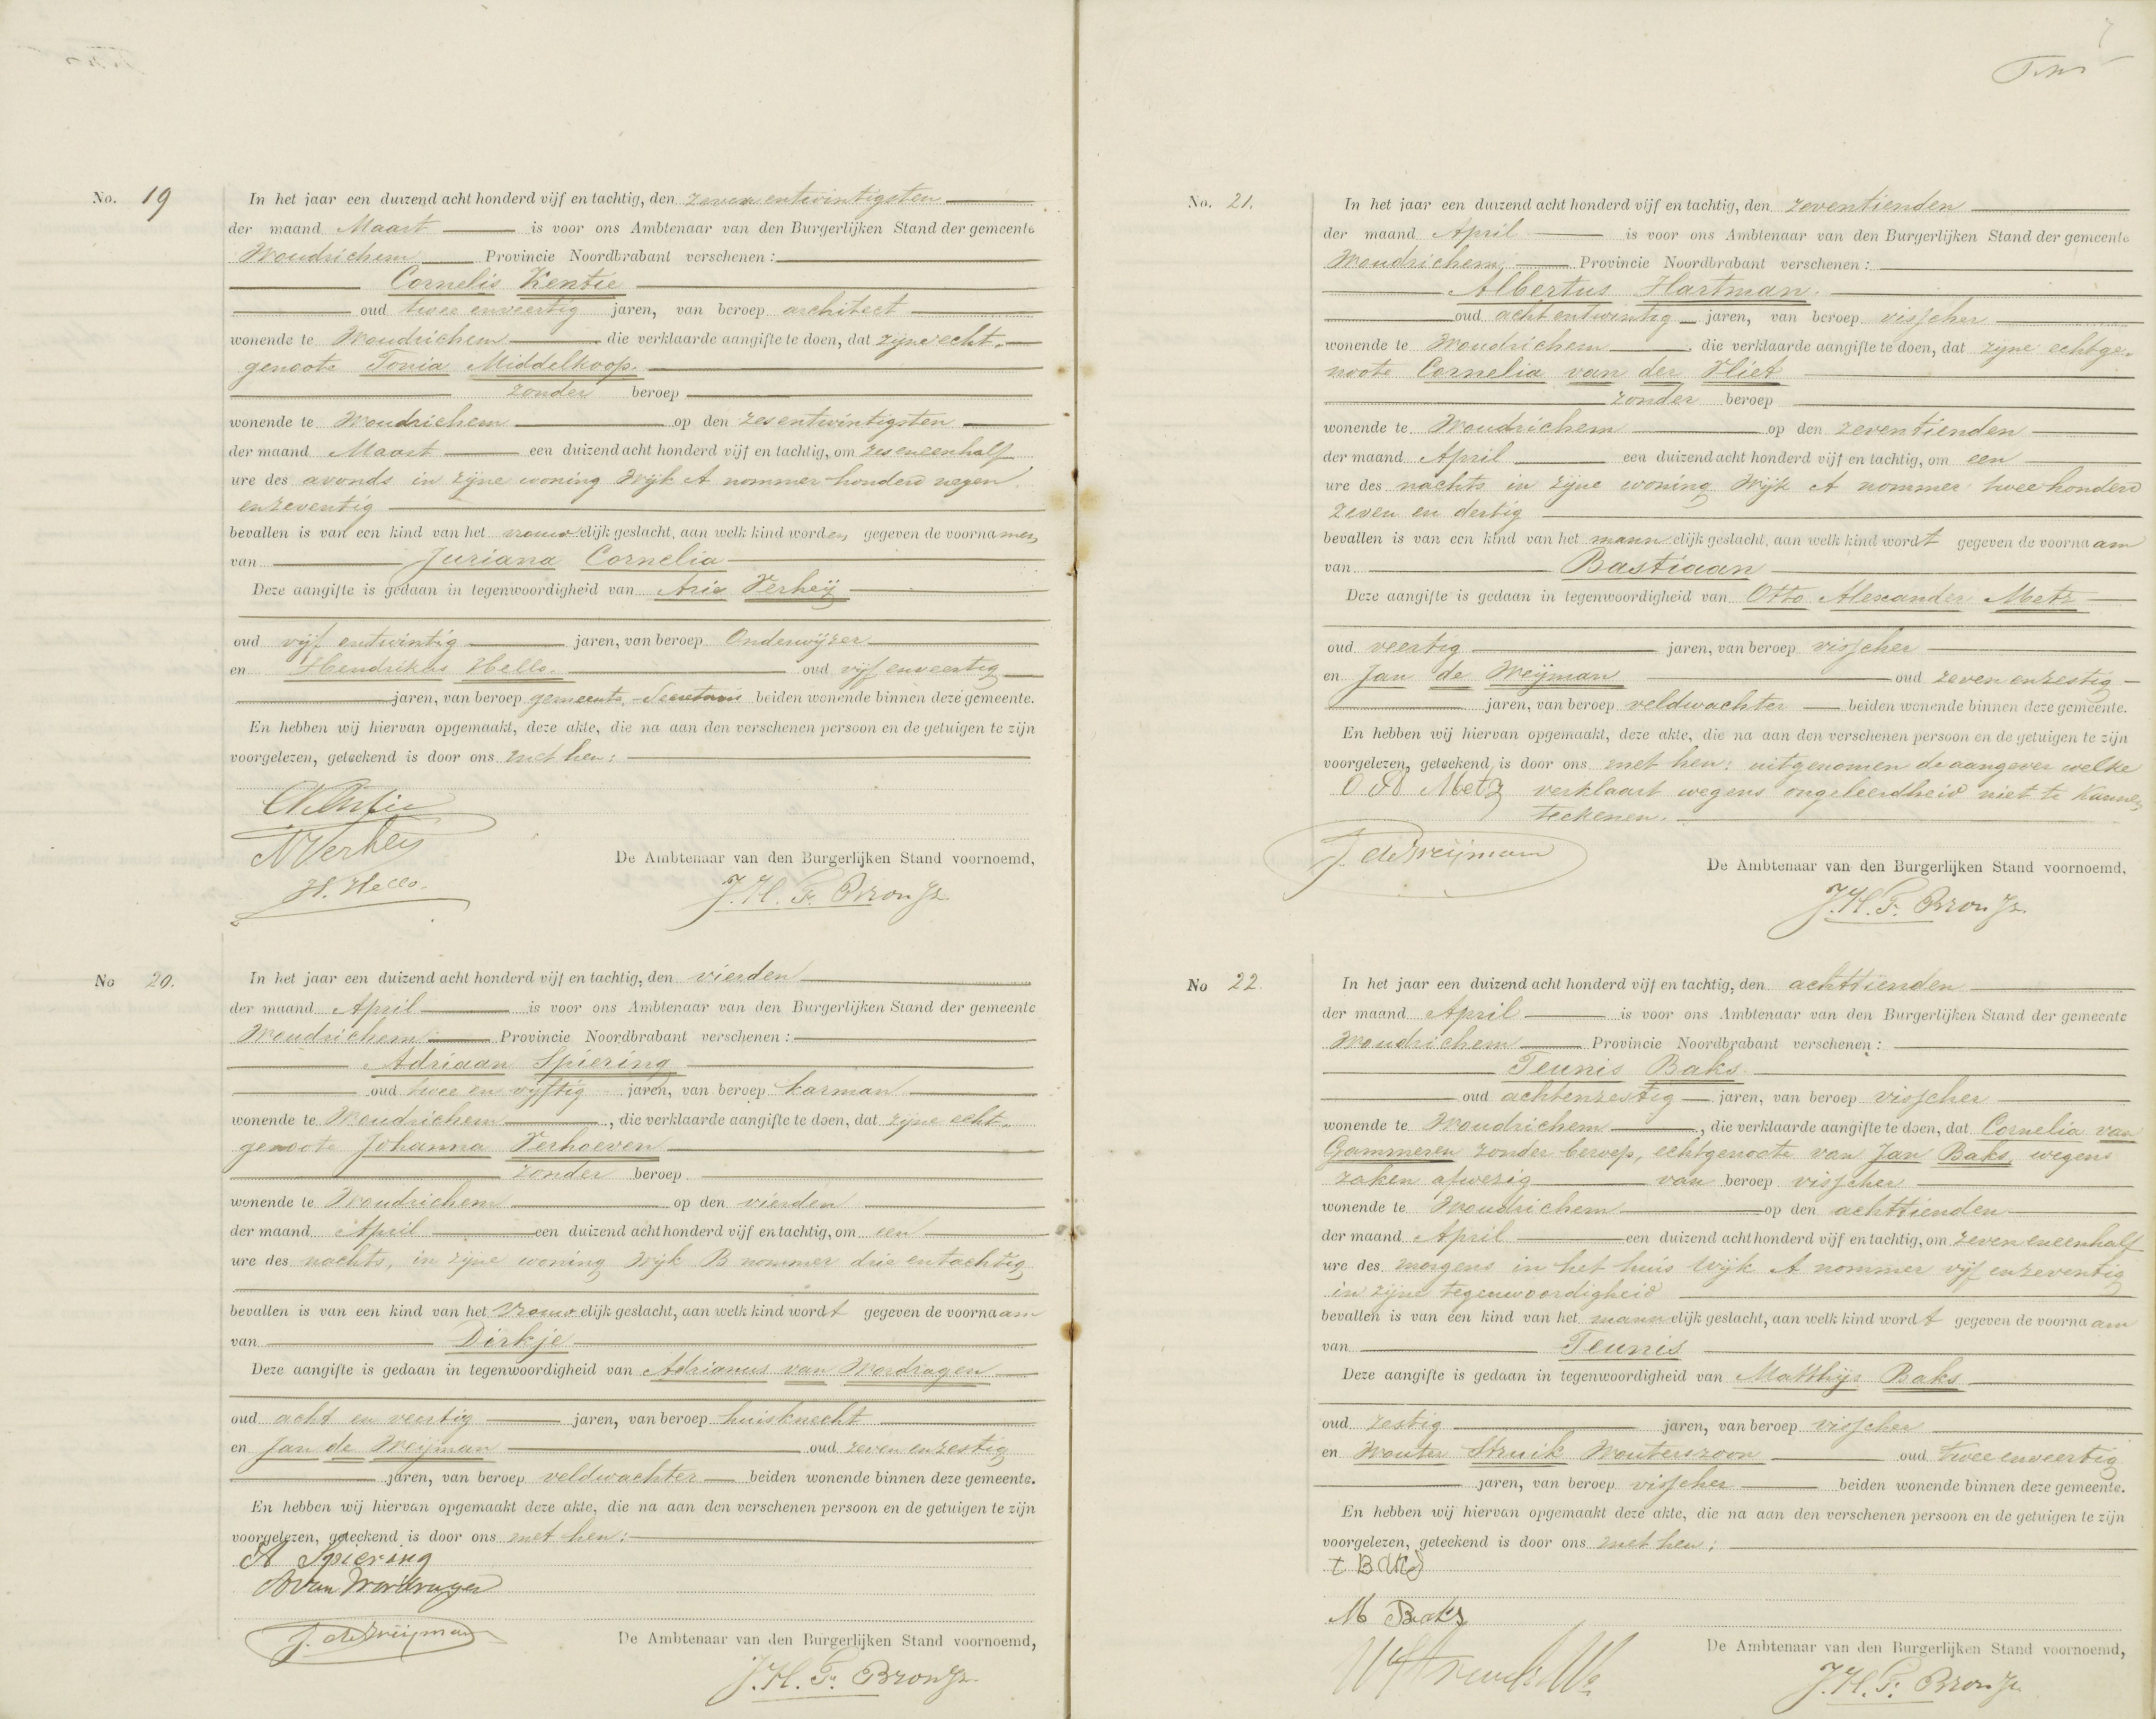 No. 19
In het jaar een duizend acht honderd vijf en tachtig, den zeven entwintigsten
der maand Maart is voor ons Ambtenaar van den Burgerlijken Stand der gemeente
Woudrichem Provincie Noordbrabant verschenen:
Cornelis Kentie
oud twee enveertig jaren, van beroep architect
wonende te Woudrichem die verklaarde aangifte te doen, dat zijne echt-
genoote Tonia Middelkoop.
zonder beroep
wonende te Woudrichem op den zesentwintigsten
der maand Maart een duizend acht honderd vijf en tachtig, om zes eneenhalf
ure des avonds in zijne woning Wijk A nommer honderd negen
enzeventig
bevallen is van een kind van het vrouwelijk geslacht, aan welk kind worden gegeven de voornamen
van Juriana Cornelia
Deze aangifte is gedaan in tegenwoordigheid van Arie Verheij
oud vijf entwintig jaren, van beroep Onderwijzer
en Hendrikus Hello. oud vijf enveertig
jaren, van beroep gemeente-Secretaris beiden wonende binnen deze gemeente.
En hebben wij hiervan opgemaakt, deze akte, die na aan den verschenen persoon en de getuigen te zijn
voorgelezen, geteekend is door ons met hen:
CKentie
AVerheij
H. Hello.
De Ambtenaar van den Burgerlijken Stand voornoemd,
J. H. F. Bron Jz.
No 20.
In het jaar een duizend acht honderd vijf en tachtig, den vierden
der maand April is voor ons Ambtenaar van den Burgerlijken Stand der gemeente
Woudrichem Provincie Noordbrabant verschenen:
Adriaan Spiering
oud twee en vijftig jaren, van beroep karman
wonende te Woudrichem, die verklaarde aangifte te doen, dat zijne echt-
genoote Johanna Verhoeven
zonder beroep
wonende te Woudrichem op den vierden
der maand April een duizend acht honderd vijf en tachtig, om een
ure des nachts, in zijne woning Wijk B nommer drie entachtig
bevallen is van een kind van het vrouwelijk geslacht, aan welk kind wordt gegeven de voornaam
van Dirkje
Deze aangifte is gedaan in tegenwoordigheid van Adrianus van Wordragen
oud acht en veertig jaren, van beroep huisknecht
en Jan de Weijman oud zeven enzestig
jaren, van beroep veldwachter beiden wonende binnen deze gemeente.
En hebben wij hiervan opgemaakt deze akte, die na aan den verschenen persoon en de getuigen te zijn
voorgelezen, geteekend is door ons met hen:
A Spiering
A van Wordragen
J. de Weijman
De Ambtenaar van den Burgerlijken Stand voornoemd,
J. H. F. Bron Jz.
7
No. 21.
In het jaar een duizend acht honderd vijf en tachtig, den zeventienden
der maand April is voor ons Ambtenaar van den Burgerlijken Stand der gemeente
Woudrichem Provincie Noordbrabant verschenen:
Albertus Hartman.
oud acht entwintig jaren, van beroep visscher
wonende te Woudrichem, die verklaarde aangifte te doen, dat zijne echtge-
noote Cornelia van der Vliet
zonder beroep
wonende te Woudrichem op den zeventienden
der maand April een duizend acht honderd vijf en tachtig, om een
ure des nachts in zijne woning Wijk A nommer twee honderd
zeven en dertig
bevallen is van een kind van het mannelijk geslacht, aan welk kind wordt gegeven de voornaam
van Bastiaan
Deze aangifte is gedaan in tegenwoordigheid van Otto Alexander Metz
oud veertig jaren, van beroep visscher
en Jan de Weijman oud zeven enzestig
jaren, van beroep veldwachter beiden wonende binnen deze gemeente.
En hebben wij hiervan opgemaakt, deze akte, die na aan den verschenen persoon en de getuigen te zijn
voorgelezen, geteekend is door ons met hen: uitgenomen de aangever welke
O A Metz verklaart wegens ongeleerdheid niet te kunnen
teekenen.
J. de Weijman
De Ambtenaar van den Burgerlijken Stand voornoemd,
J. H. F. Bron Jz.
No 22.
In het jaar een duizend acht honderd vijf en tachtig, den achttienden
der maand April is voor ons Ambtenaar van den Burgerlijken Stand der gemeente
Woudrichem Provincie Noordbrabant verschenen:
Teunis Baks.
oud achtenzestig jaren, van beroep visscher
wonende te Woudrichem, die verklaarde aangifte te doen, dat Cornelia van
Gammeren zonder beroep, echtgenoote van Jan Baks, wegens
zaken afwezig van beroep visscher
wonende te Woudrichem op den achttienden
der maand April een duizend acht honderd vijf en tachtig, om zeven eneenhalf
ure des morgens in het huis Wijk A nommer vijf enzeventig
in zijne tegenwoordigheid
bevallen is van een kind van het mannelijk geslacht, aan welk kind wordt gegeven de voornaam
van Teunis
Deze aangifte is gedaan in tegenwoordigheid van Matthijs Baks
oud zestig jaren, van beroep visscher
en Wouter Struik Wouterszoon oud twee enveertig
jaren, van beroep visscher beiden wonende binnen deze gemeente.
En hebben wij hiervan opgemaakt deze akte, die na aan den verschenen persoon en de getuigen te zijn
voorgelezen, geteekend is door ons met hen:
t Baks
M Baks
W Struik Wz
De Ambtenaar van den Burgerlijken Stand voornoemd,
J. H. F. Bron Jz.